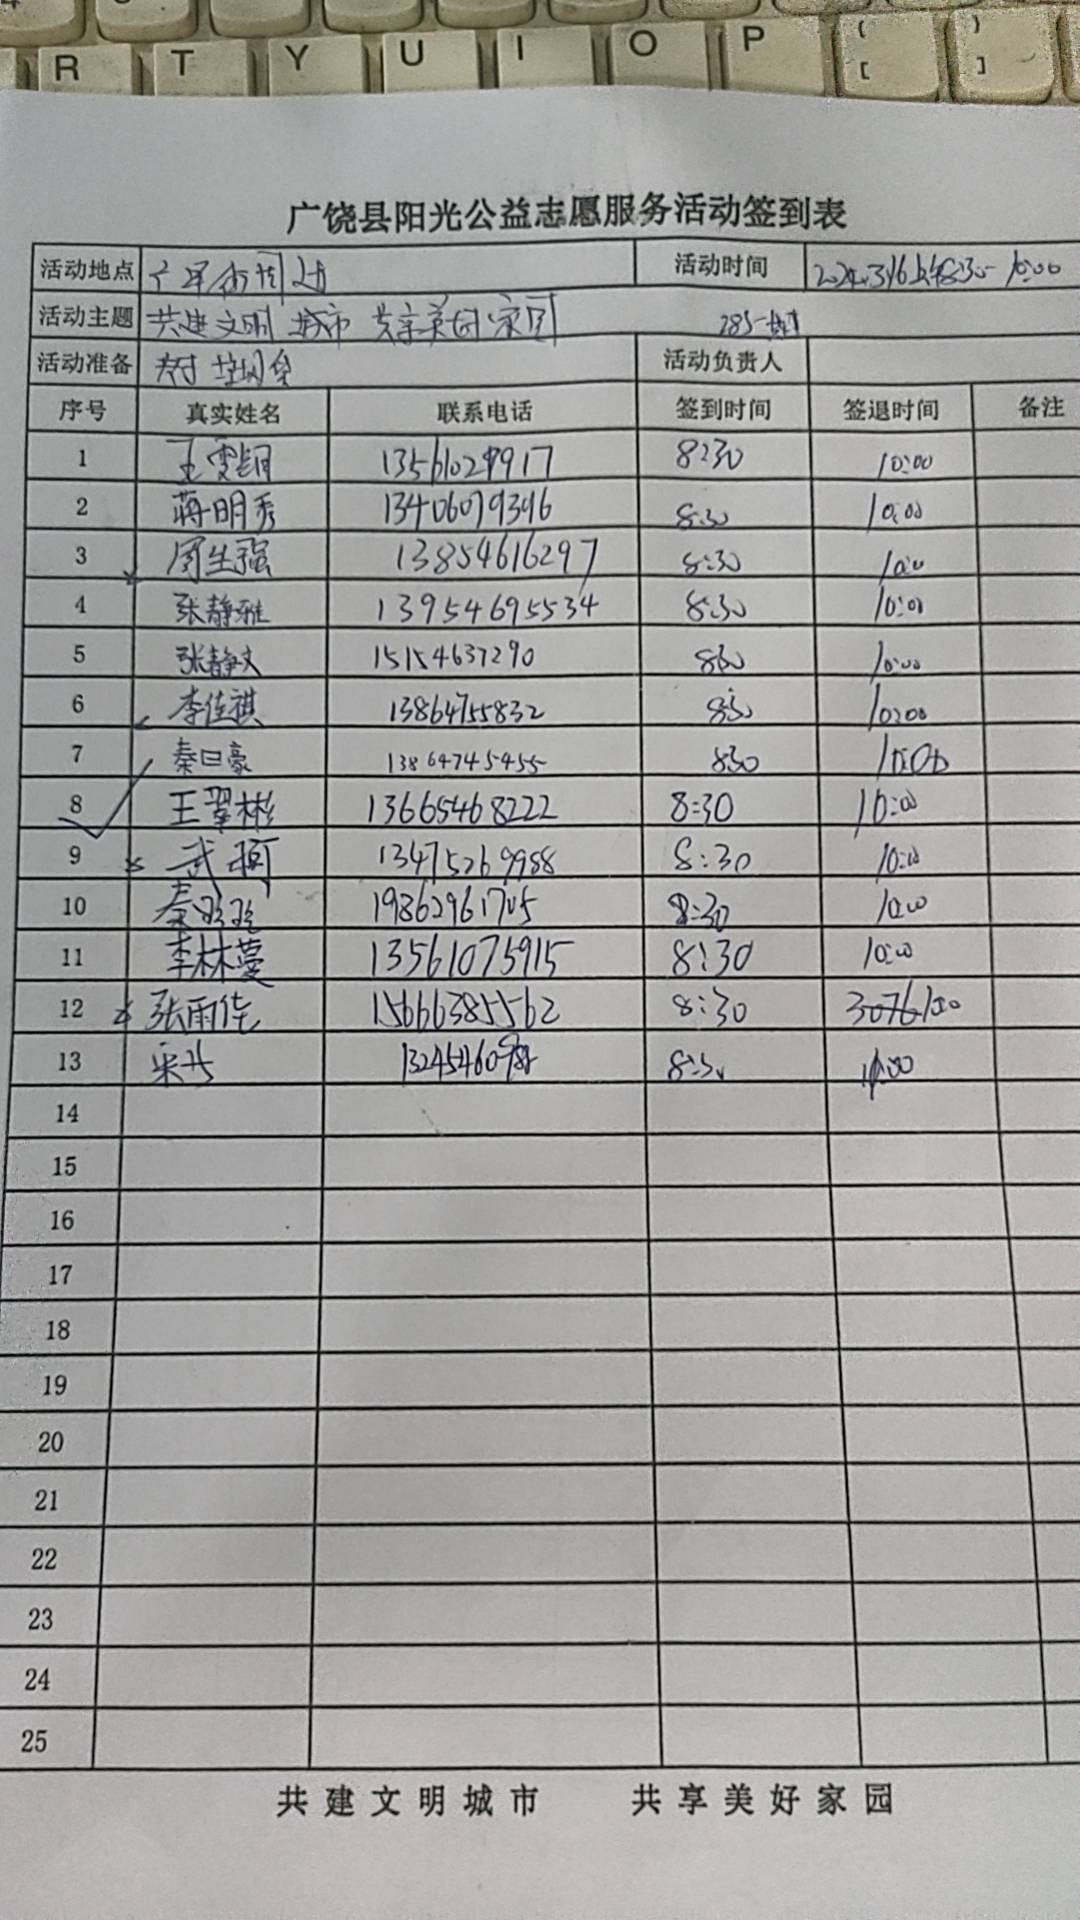 R T Y U I O P { [ } ]
广饶县阳光公益志愿服务活动签到表
活动地点 活动时间 8:30-10:00
活动主题 共建文明城市 共享美好家园
活动准备 垃圾袋 活动负责人
序号 真实姓名 联系电话 签到时间 签退时间 备注
1 8:30 10:00
2 蒋明秀 13406079396 8:30 10:00
3 周生强 13854616297 8:30 10:00
4 张静雅 13954695534 8:30 10:00
5 张静文 15154637290 8:30 10:00
6 李佳祺 13864755832 8:30 10:00
7 秦曰豪 13864745455 830 10:00
8 王翠彬 13665468222 8:30 10:00
9 武珂 13475269988 8:30 10:00
10 19862961705 8:30 10:00
11 李林蔓 13561075915 8:30 10:00
12 张雨佳 15666385562 8:30 10:00
13 8:30 10:00
14
15
16
17
18
19
20
21
22
23
24
25
共建文明城市 共享美好家园